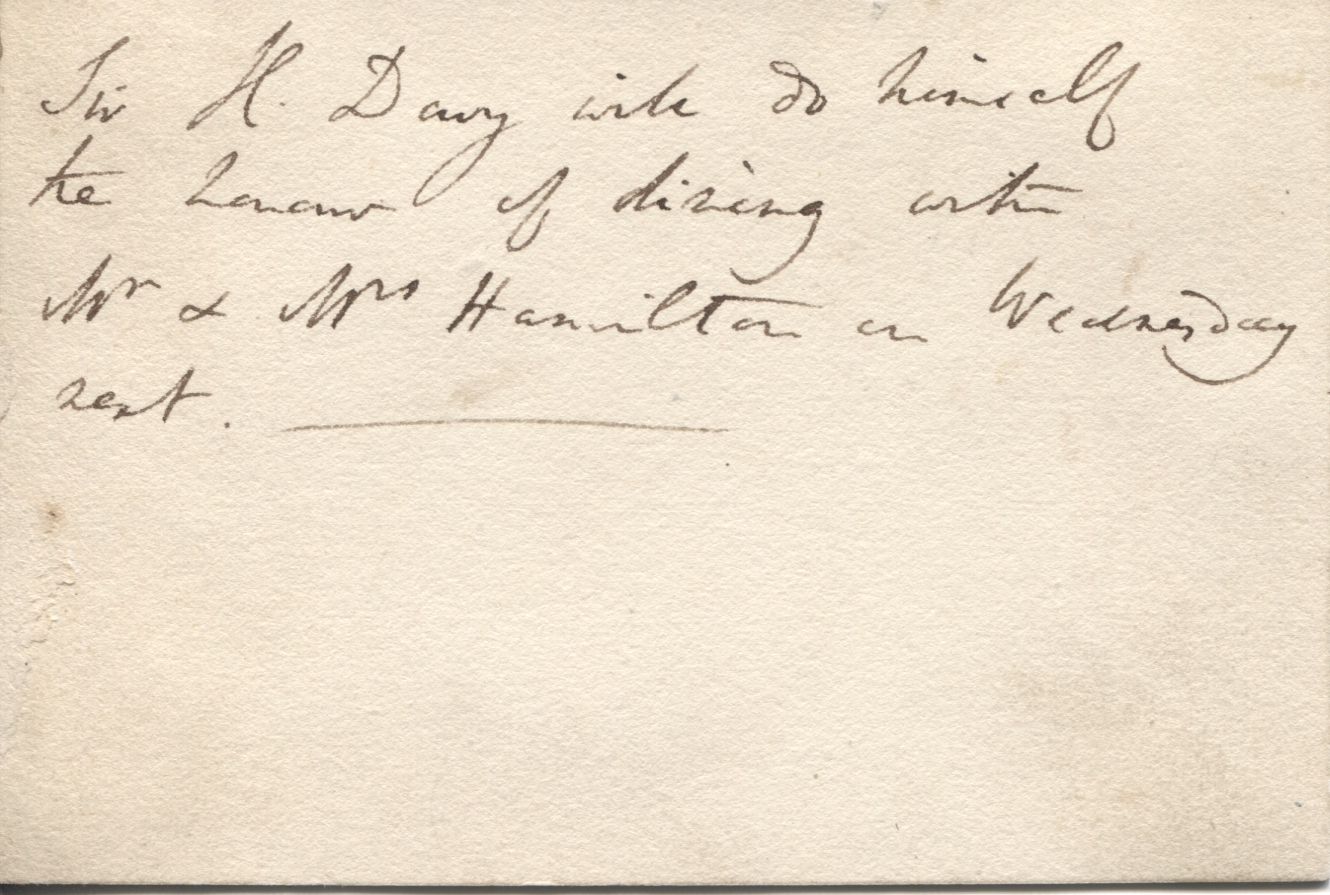 Sir H. Davy will do himself
the honour of dining with
Mr & Mrs Hamilton on Wednesday
next.